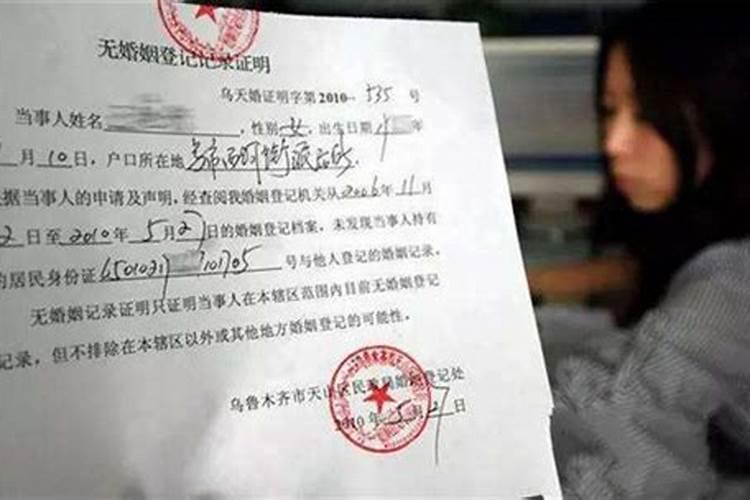 无婚姻登记记录证明
乌天婚证明字第2010-535 号
当事人姓名 ,性别 女,出生日期 年
月10日,户口所在地
据当事人的申请及声明,经查阅我婚姻登记机关从2006年11月
2日至2010年5月27日的婚姻登记档案,未发现当事人持有
的居民身份证 号与他人登记的婚姻记录。
无婚姻记录证明只证明当事人在本辖区范围内目前无婚姻登记
记录,但不排除在本辖区以外或其他地方婚姻登记的可能性。
乌鲁木齐市天山区民政局婚姻登记处
2010年5月27日